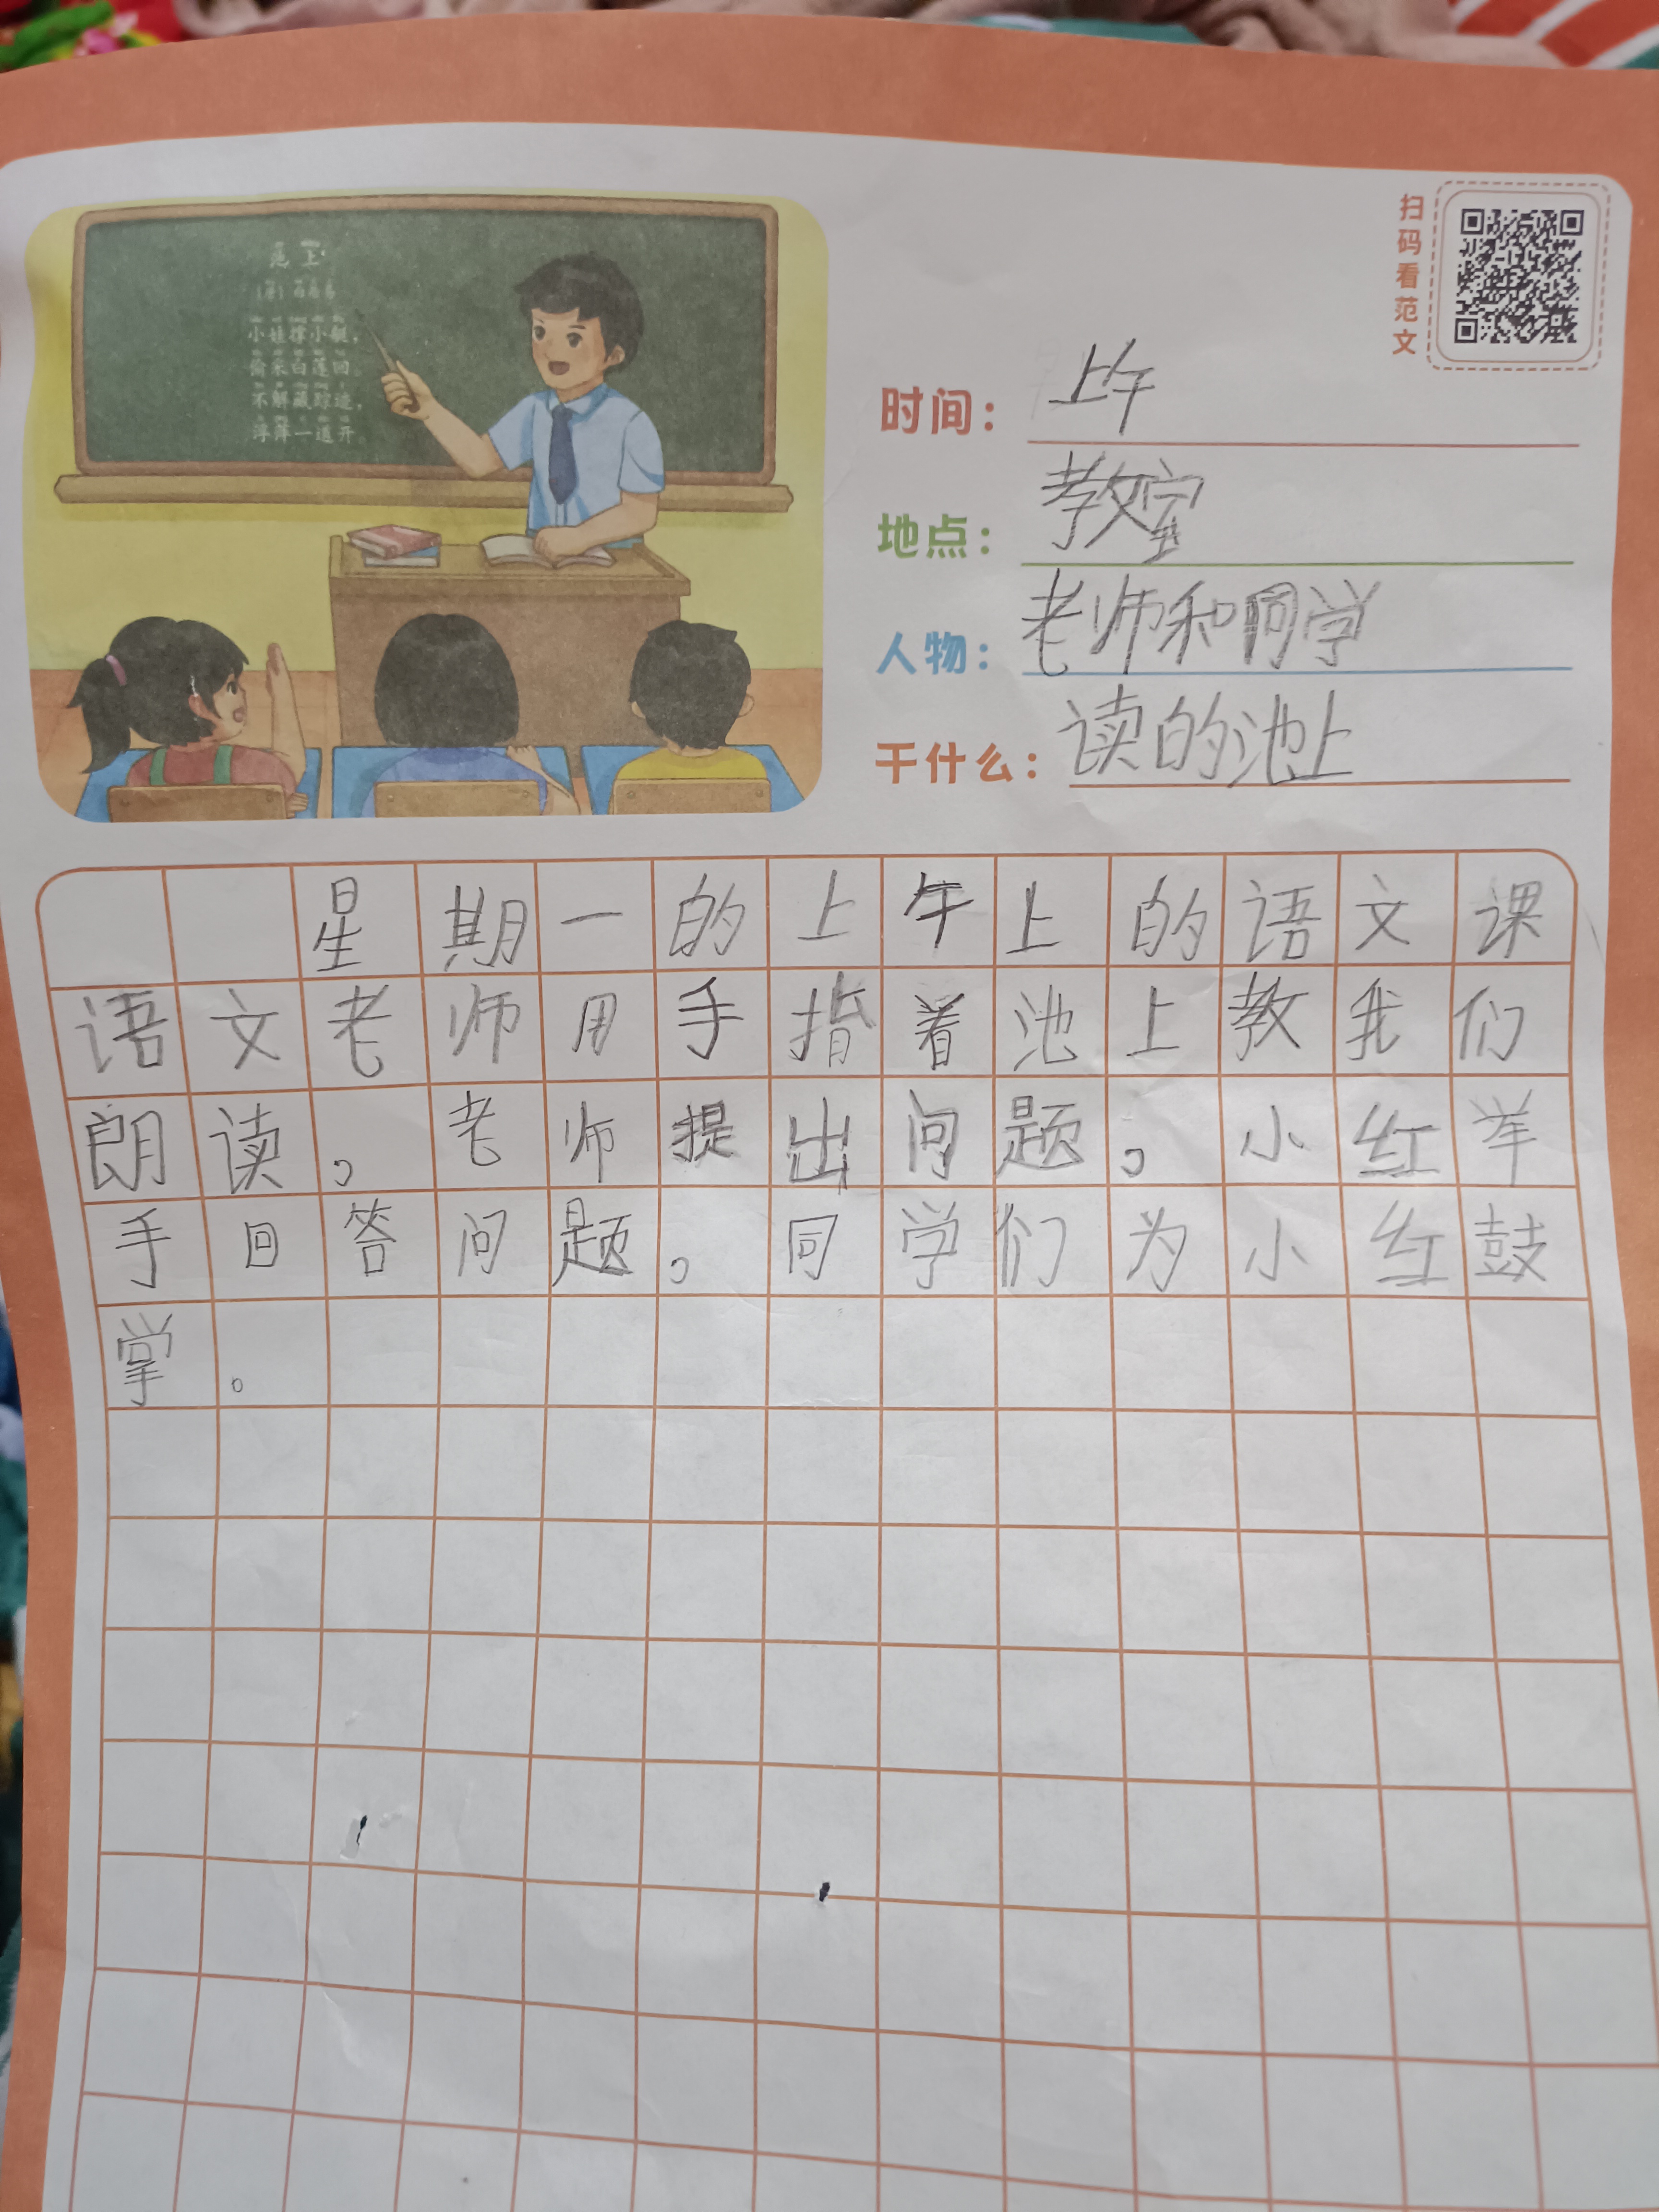 扫码看范文
池上
小娃撑小艇，
偷采白莲回。
不解藏踪迹，
浮萍一道开。
时间：上午
地点：教室
人物：老师和同学
干什么：读的池上
星期一的上午上的语文课
语文老师用手指着池上教我们
朗读。老师提出问题。小红举
手回答问题。同学们为小红鼓
掌。